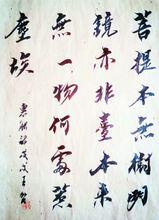 菩提本無樹明
鏡亦非臺本来
無一物何處惹
塵埃
惠能詩戊戌